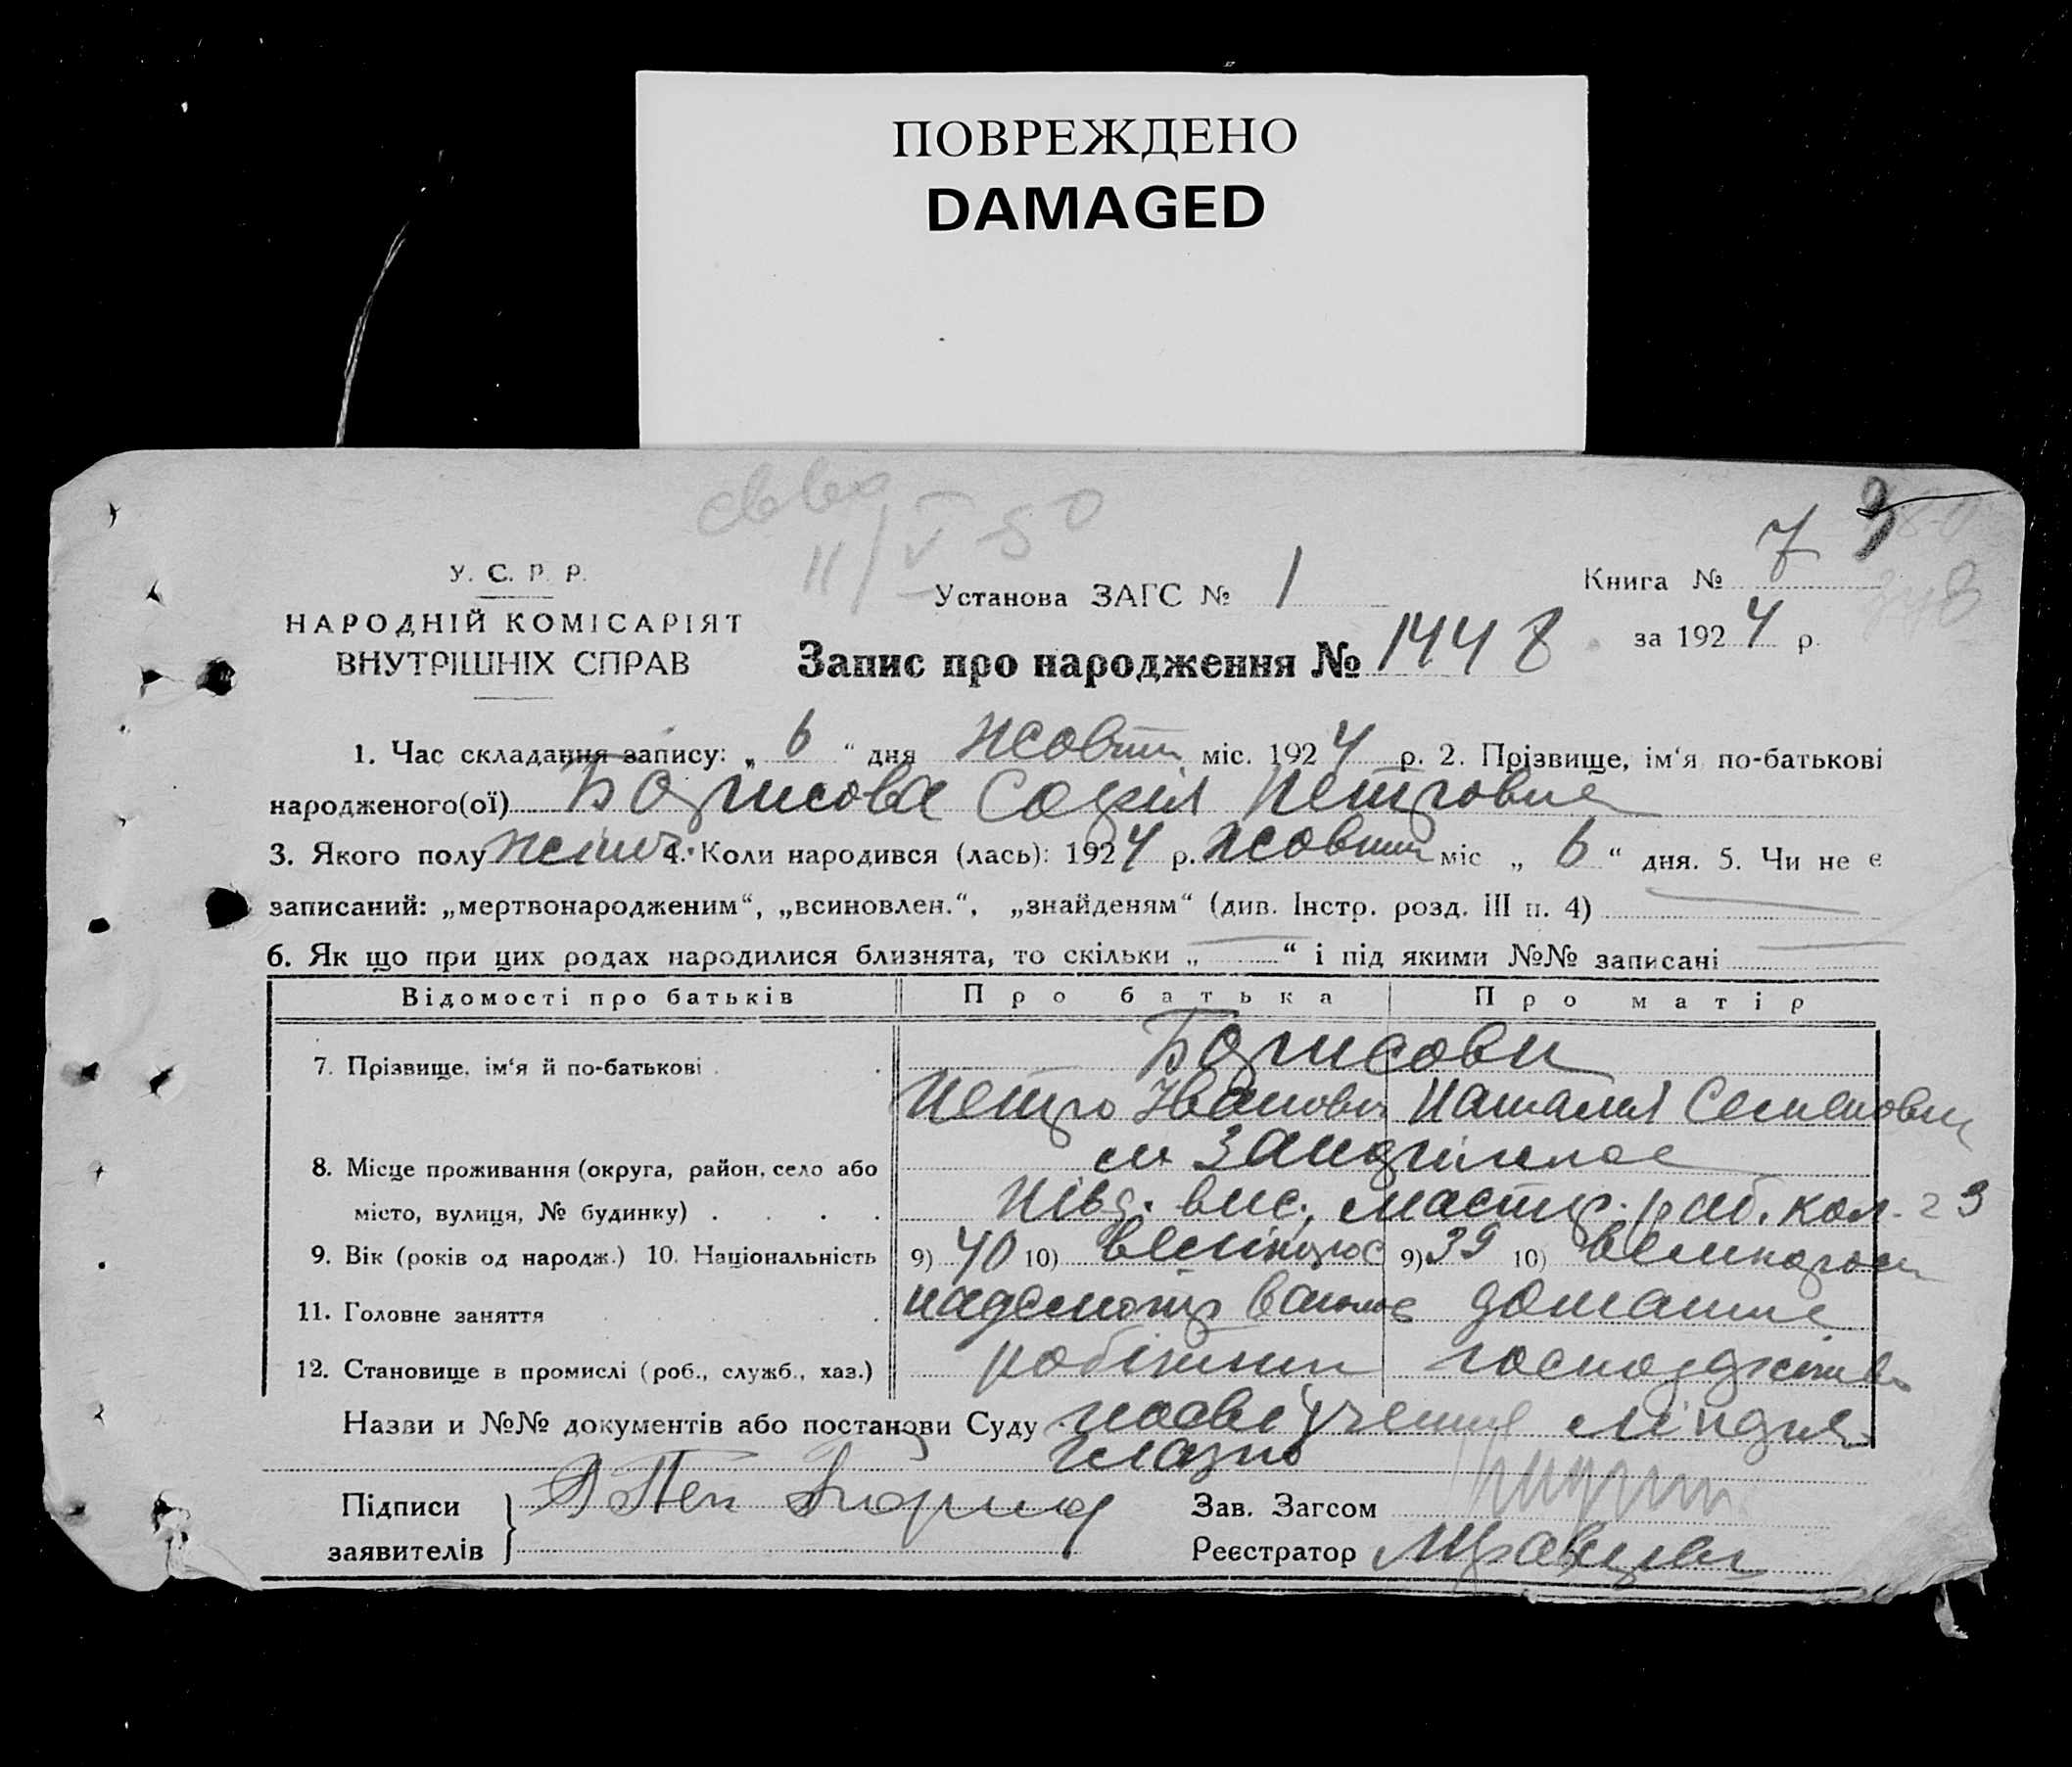 ПОВРЕЖДЕНО
DAMAGED
11/V 50
7
У. С. Р. Р.
НАРОДНІЙ КОМІСАРІЯТ
ВНУТРІШНІХ СПРАВ
Установа ЗАГС № 1
Книга №
за 1924 р.
Запис про народження № 1448
1. Час складання запису: „ 6 “ дня жовтн. міс. 1924 р. 2. Прізвище, ім'я по-батькові
народженого(ої) Борисова Софія Петровна
3. Якого полу жіноч. 4. Коли народився (лась): 1924 р. жовтн міс „ 6 “ дня. 5. Чи не є
записаний: „мертвонародженим“, „всиновлен.“, „знайденям“ (див. Інстр. розд. III п. 4) —
6. Як що при цих родах народилися близнята, то скільки „ — “ і під якими №№ записані —
Відомості про батьків Про батька Про матір
7. Прізвище, ім'я й по-батькові Борисови
Петро Іванович Наталія Семеновн
8. Місце проживання (округа, район, село або м Запоріжжє
місто, вулиця, № будинку) Півд. вис. раб. кол. 23
9. Вік (років од народж.) 10. Національність 9) 40 10) великорос 9) 39 10) великорос
11. Головне заняття домашнє
12. Становище в промислі (роб., служб., хаз.) робітник господжство
Назви и №№ документів або постанови Суду посвідчення
Підписи
заявителів
Зав. Загсом
Реєстратор